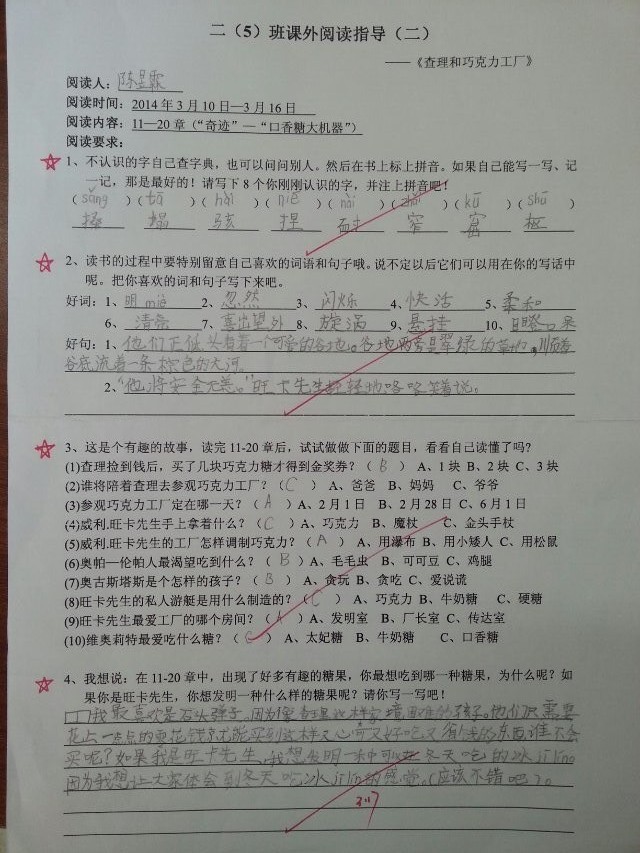 二（5）班课外阅读指导（二）
——《查理和巧克力工厂》
阅读人：陈昱霖
阅读时间：2014年3月10日—3月16日
阅读内容：11—20章（“奇迹”—“口香糖大机器”）
阅读要求：
1、不认识的字自己查字典，也可以问问别人。然后在书上标上拼音。如果自己能写一写、记
一记，那是最好的！请写下8个你刚刚认识的字，并注上拼音吧！
（sǎng）（tā）（hái）（niē）（nài）（zhǎi）（kū）（shū）
搡 塌 弦 捏 耐 窄 窟 枢
2、读书的过程中要特别留意自己喜欢的词语和句子哦。说不定以后它们可以用在你的写话中
呢。把你喜欢的词和句子写下来吧。
好词：1、明mèi 2、忽然 3、闪烁 4、快活 5、柔和
6、清亮 7、喜出望外 8、旋涡 9、悬挂 10、目瞪口呆
好句：1、他们正低头看着一个可爱的谷地。谷地两旁是翠绿的草地，顺着
谷底流着一条棕色的大河。
2、“他将安全无恙。”旺卡先生轻轻地咯咯笑着说。
3、这是个有趣的故事，读完11-20章后，试试做做下面的题目，看看自己读懂了吗？
(1)查理捡到钱后，买了几块巧克力糖才得到金奖券？（B） A、1块 B、2块 C、3块
(2)谁将陪着查理去参观巧克力工厂？（C） A、爸爸 B、妈妈 C、爷爷
(3)参观巧克力工厂定在哪一天？（A）A、2月1日 B、2月28日 C、6月1日
(4)威利.旺卡先生手上拿着什么？（C）A、巧克力 B、魔杖 C、金头手杖
(5)威利.旺卡先生的工厂怎样调制巧克力？（A） A、用瀑布 B、用小矮人 C、用松鼠
(6)奥帕一伦帕人最渴望吃到什么？（B）A、毛毛虫 B、可可豆 C、鸡腿
(7)奥古斯塔斯是个怎样的孩子？（B） A、贪玩 B、贪吃 C、爱说谎
(8)旺卡先生的私人游艇是用什么制造的？（C） A、巧克力 B、牛奶糖 C、硬糖
(9)旺卡先生最爱工厂的哪个房间？（A）A、发明室 B、厂长室 C、传达室
(10)维奥莉特最爱吃什么糖？（C） A、太妃糖 B、牛奶糖 C、口香糖
4、我想说：在11-20章中，出现了好多有趣的糖果，你最想吃到哪一种糖果，为什么呢？如
果你是旺卡先生，你想发明一种什么样的糖果呢？请你写一写吧！
我最喜欢是石头弹子，因为像查理这样家境困难的孩子。他们只需要
花上一点点的零花钱就能买到这样又 可又好吃又省钱的东西谁不会
买呢？如果我是旺卡先生，我想发明一种可以在冬天吃的冰jī líng
因为我想让大家体会到冬天吃冰jī lín的感觉。（应该不错吧）。
3.17